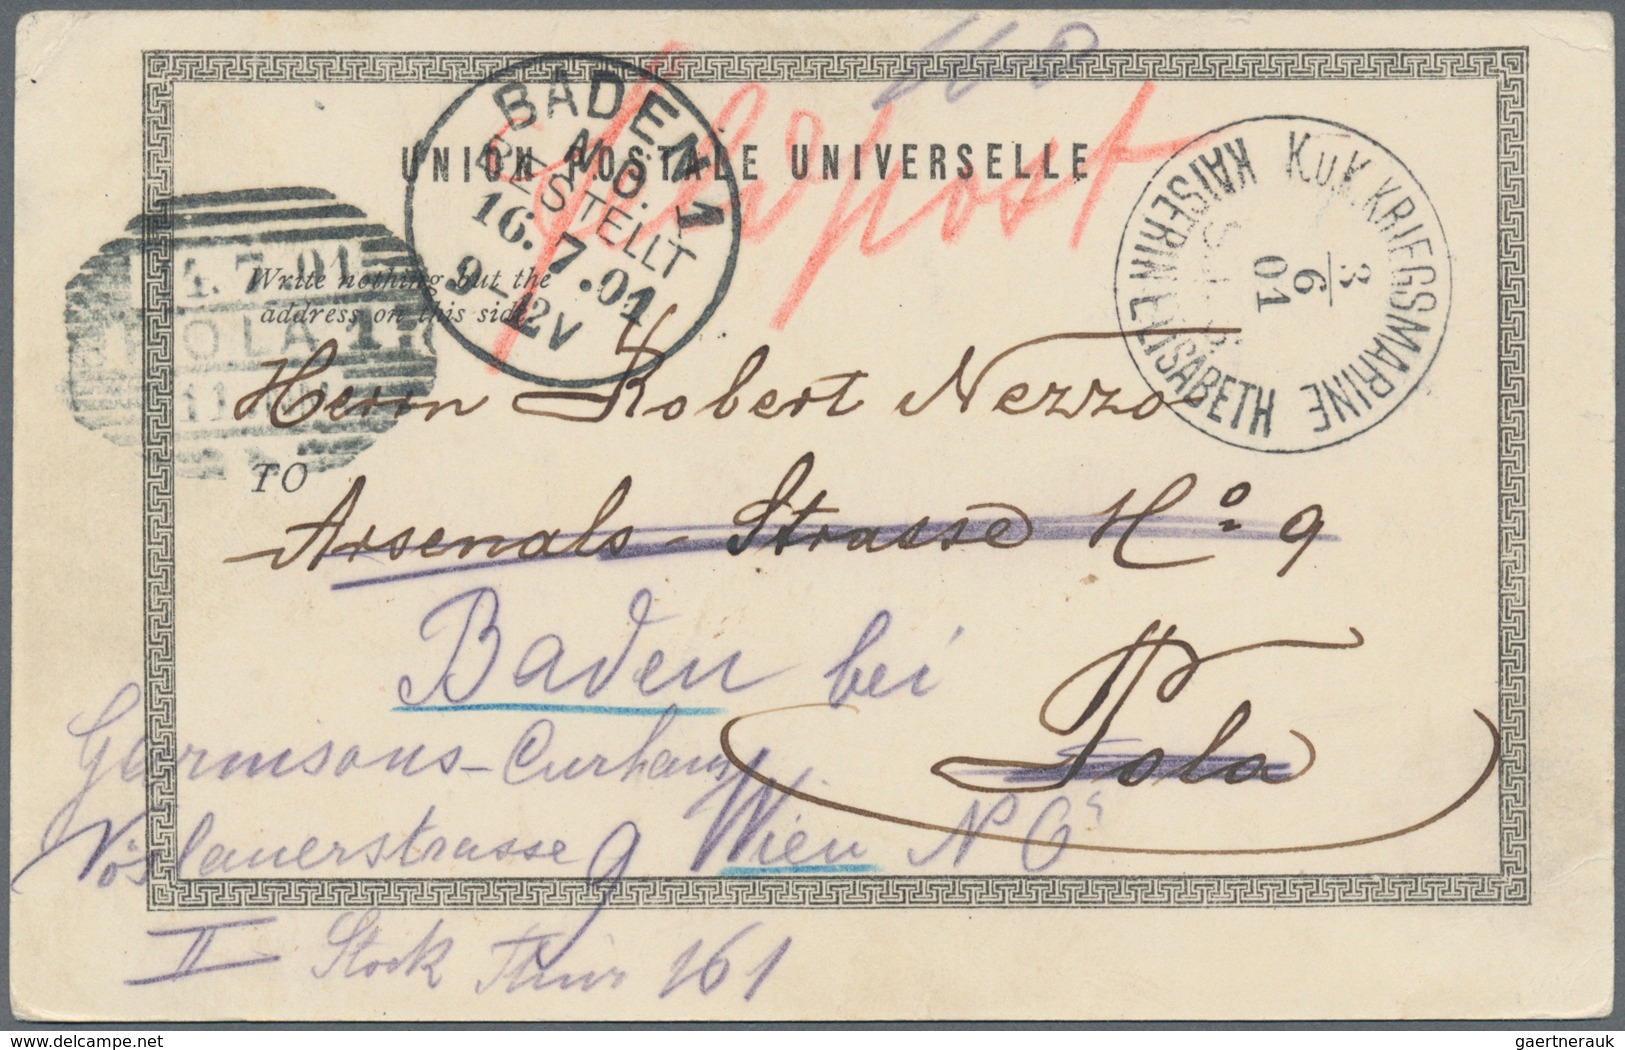 Feldpost
UNION POSTALE UNIVERSELLE
BADEN 1
N.Ö.
BESTELLT
16.7.01
9-12V
K.u.K.KRIEGSMARINE
KAISERIN ELISABETH
3
6
01
4.7.01
POLA 1
11
Write nothing but the
address on this side.
Herrn Robert Nezzo
TO
Arsenals-Strasse No 9
Baden bei
Pola
Garnisons-Curhaus
Wien N Ö
Vöslauerstrasse 9
II Stock Thür 161
delcampe.net
gaertnerauk